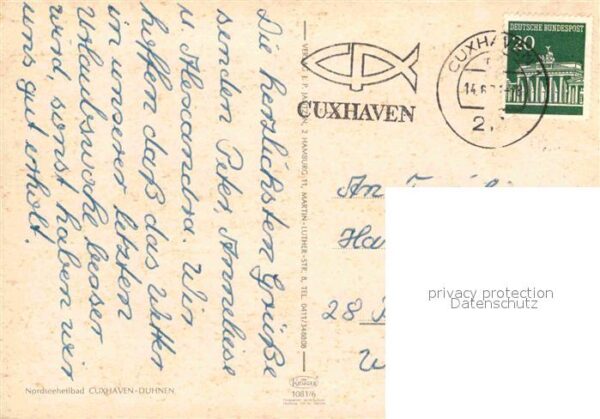 Die herzlichsten Grüße
senden Peter, Anneliese
u. Alexandra. Wir
hoffen daß das Wetter
in unserer letzten
Urlaubswoche besser
wird, sonst haben wir
uns gut erholt.
VERLAG E. P. 2 HAMBURG 11, MARTIN-LUTHER-STR. 8, TEL. 0411/348808
CUXHAVEN
CUXHAVEN
14.6.
2
20
DEUTSCHE BUNDESPOST
An
Ha
28
privacy protection
Datenschutz
Nordseeheilbad CUXHAVEN-DUHNEN
KRÜGER
1081/6